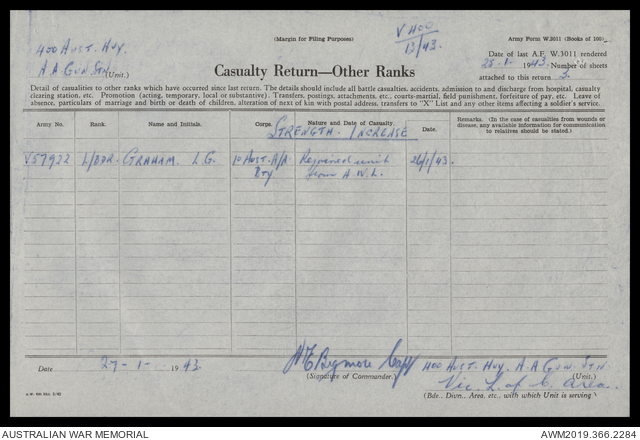 (Margin for Filing Purposes)
V 400
13/43.
Army Form W.3011 (Books of 100)
400 Aust. Hvy.
A A Gun Stn (Unit.)
Date of last A.F. W.3011 rendered
25-1- 1943. Number of sheets
attached to this return
Casualty Return—Other Ranks
Detail of casualties to other ranks which have occurred since last return. The details should include all battle casualties, accidents, admission to and discharge from hospital, casualty
clearing station, etc. Promotion (acting, temporary, local or substantive). Transfers, postings, attachments, etc., courts-martial, field punishment, forfeiture of pay, etc. Leave of
absence, particulars of marriage and birth or death of children, alteration of next of kin with postal address, transfers to "X" List and any other items affecting a soldier's service.
Army No. Rank. Name and Initials. Corps. Nature and Date of Casualty. Date. Remarks. (In the case of casualties from wounds or
disease, any available information for communication
to relatives should be stated.)
Strength Increase
V57922 L/Bdr. Graham. L.G. 10 Aust. A/A Rejoined unit 26/1/43.
Bty from A.W.L.
Date 27-1- 1943 Capt 400 Aust. Hvy. A.A Gun Stn
(Signature of Commander.) (Unit.)
Vic L of C Area.
(Bde., Divn., Area, etc., with which Unit is serving)
AUSTRALIAN WAR MEMORIAL
AWM2019.366.2284